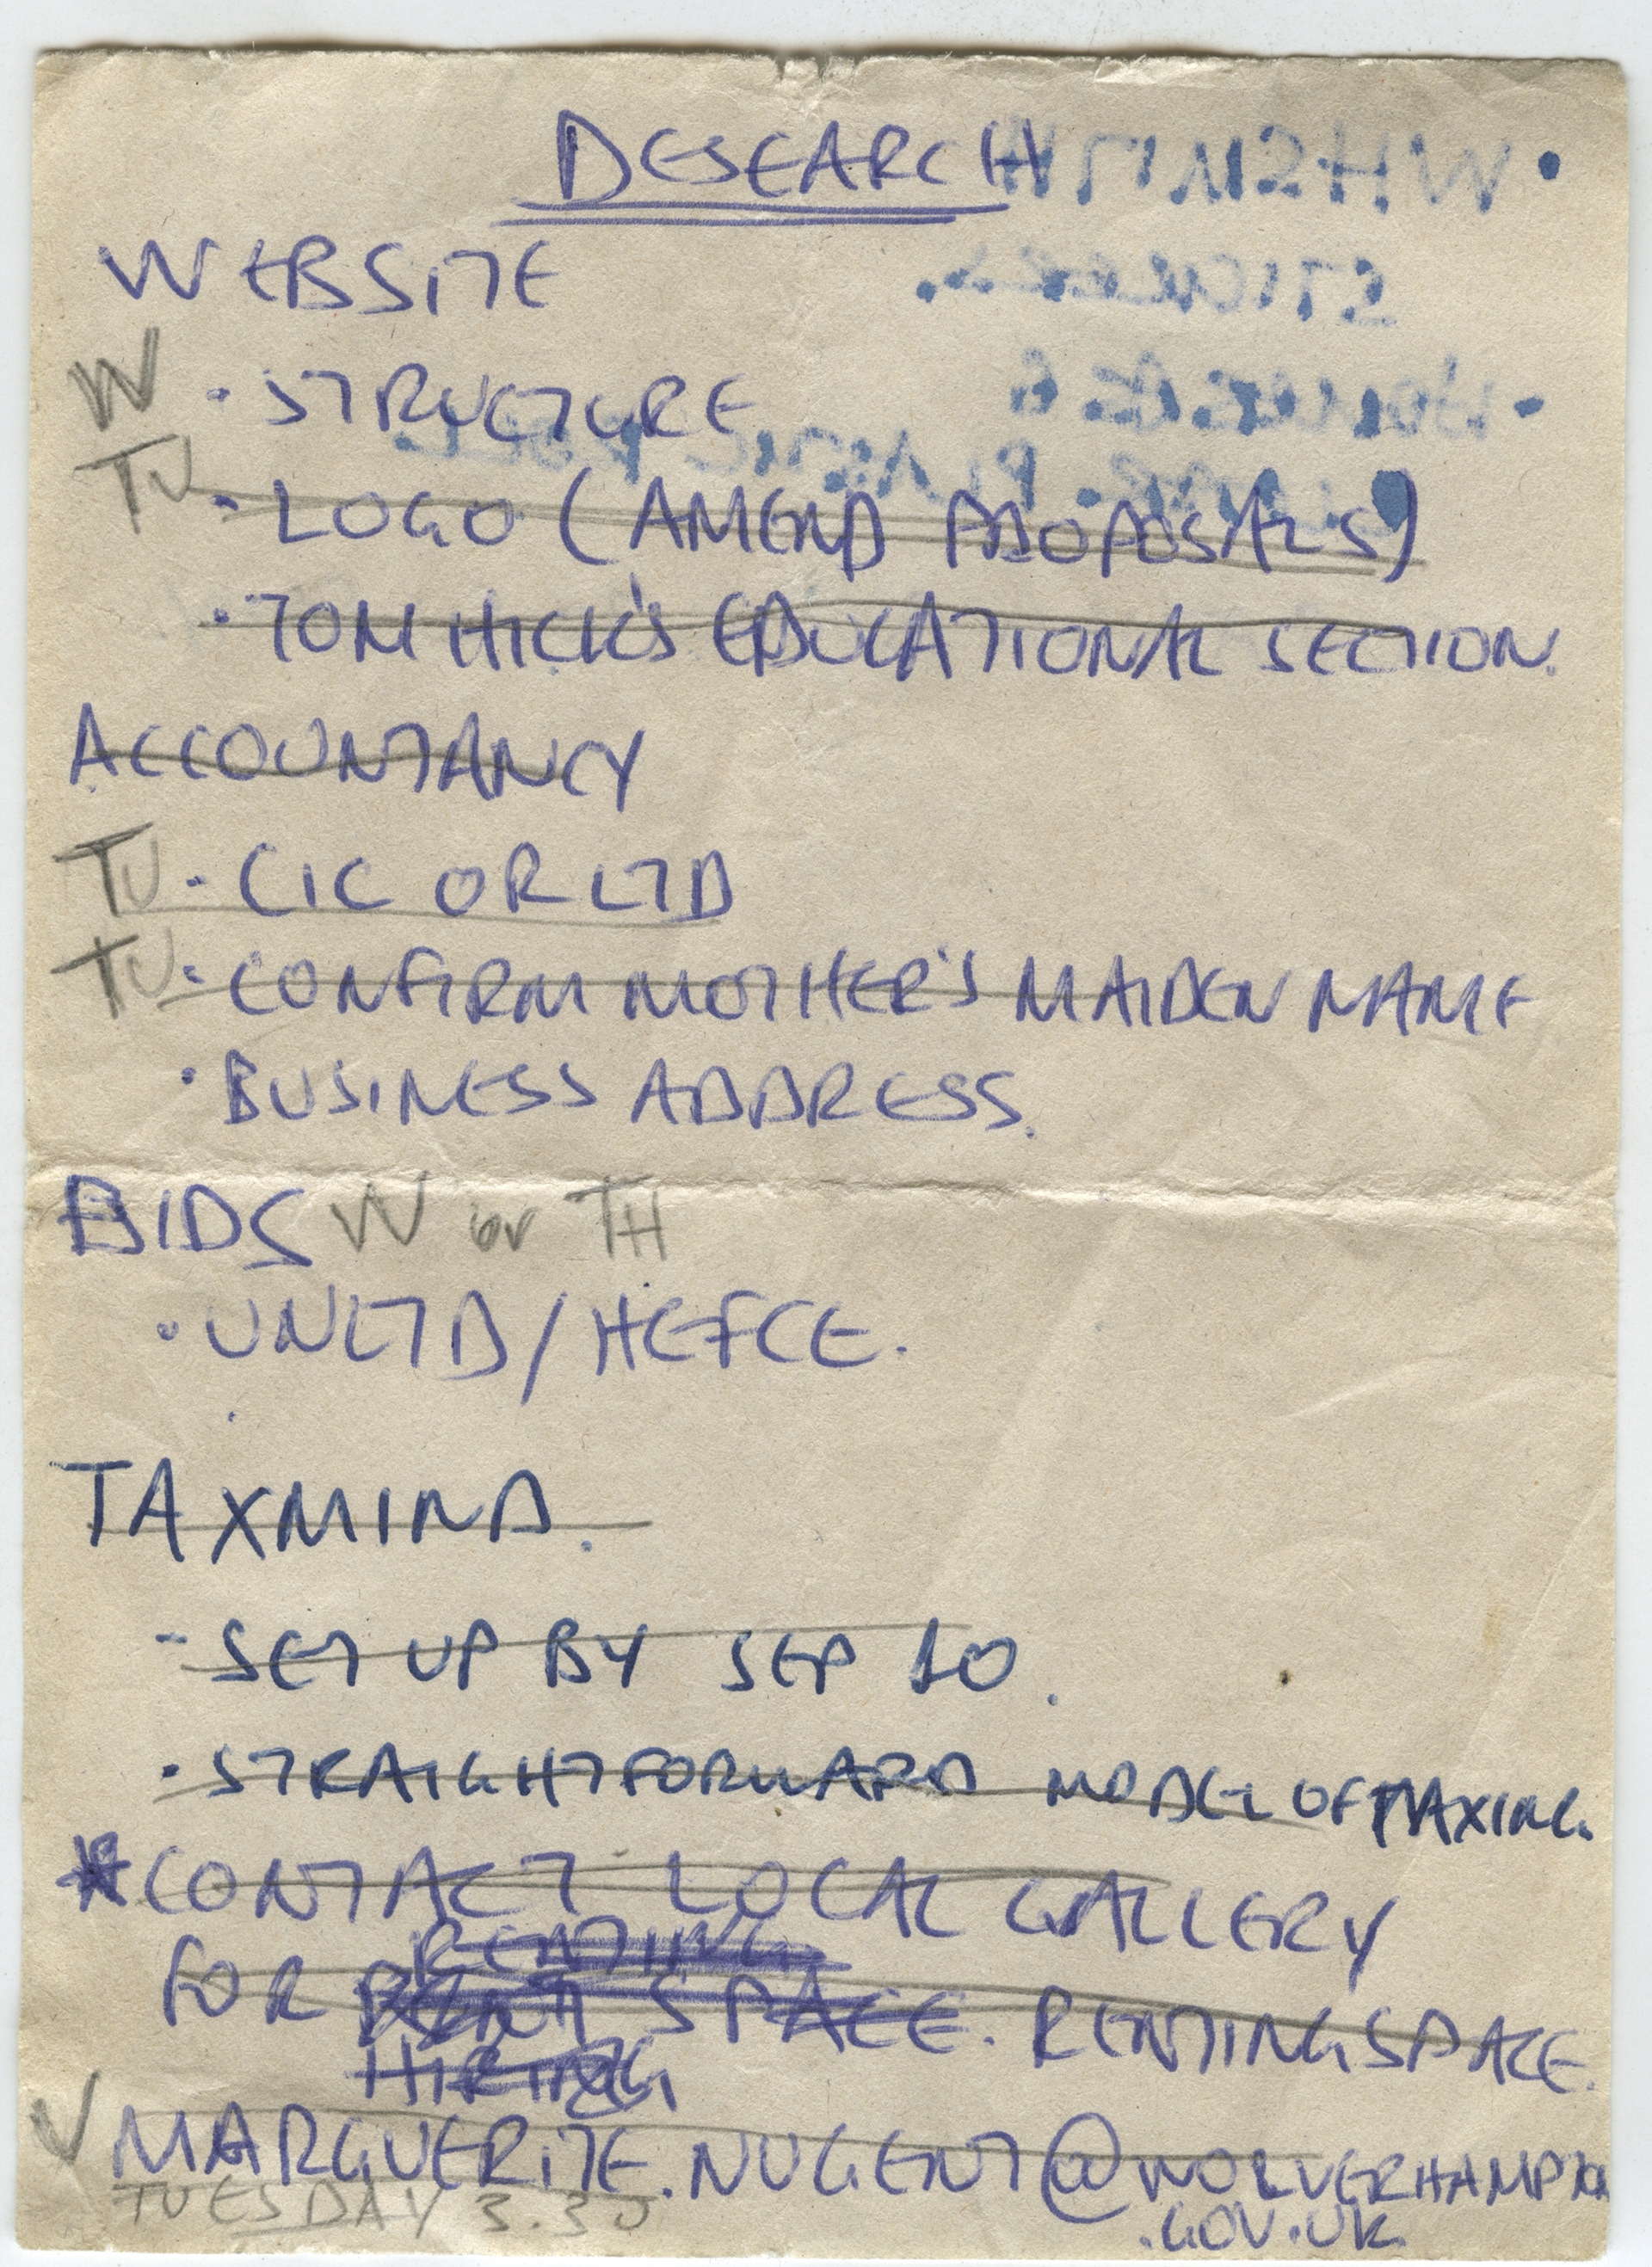 DESEARCH
WHSMITH
STICKERS.
WEBSITE
W • STRUCTURE
TU • LOGO (AMEND PROPOSALS)
• TOM HICK'S EDUCATIONAL SECTION.
ACCOUNTANCY
TU • CIC OR LTD
TU • CONFIRM MOTHER'S MAIDEN NAME
• BUSINESS ADDRESS.
BIDS W or TH
• UNLTD/HEFCE.
TAXMIND.
- SET UP BY SEP 10.
• STRAIGHTFORWARD MODEL OF TAXING.
* CONTACT LOCAL GALLERY
RENTING
FOR RENT SPACE. RENTING SPACE.
HIRING
MARGUERITE.NUGENT@WOLVERHAMPTON
.GOV.UK
TUESDAY 3.30